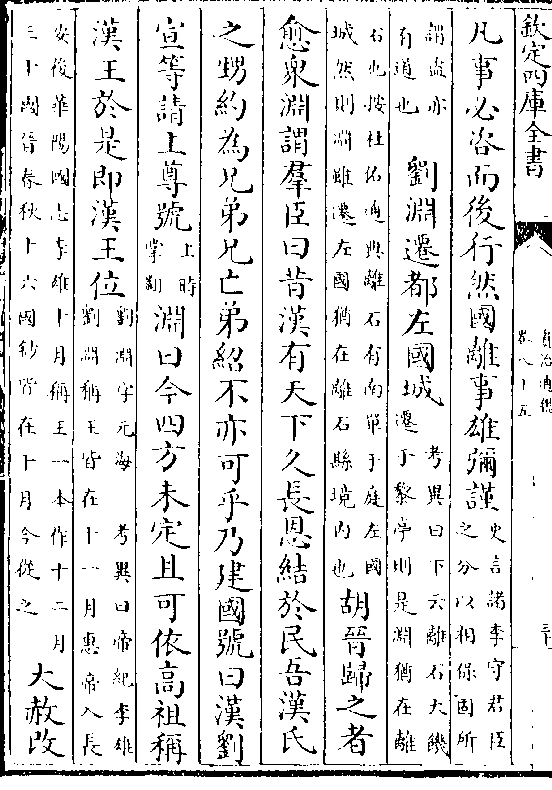 欽定四庫全書
資治通鑑
卷八十五
凡事必咨而後行然國離事雄彌謹史言諸李守君臣
之分以相保國所
謂盗亦
有道也劉淵遷都左國城考異曰下云離石大饑
遷于黎亭則是淵猶在離
石也按杜佑通典離石有南單于庭左國
城然則淵雖遷左國猶在離石縣境内也胡晉歸之者
愈衆淵謂羣臣曰昔漢有天下久長恩結於民吾漢氏
之甥約為兄弟兄亡弟紹不亦可乎乃建國號曰漢劉
宣等請上尊號上時
掌翻淵曰今四方未定且可依高祖稱
漢王於是即漢王位劉淵字元海 考異曰帝紀李雄
劉淵稱王皆在十一月惠帝入長
安後華陽國志李雄十月稱王一本作十二月
三十國晉春秋十六國鈔皆在十月今從之大赦改